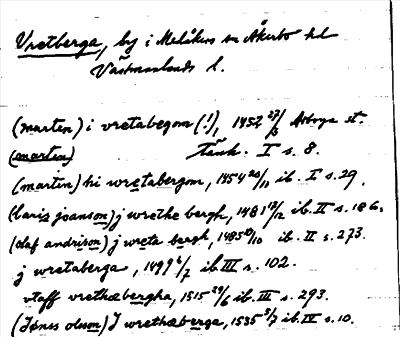 Vretberga, by i Medåkers sn Åkerbo hd
Västmanlands l.
(marten) i vretabegom (!), 1452 27/3 Arboga st.
(marten) Tänk. I s. 8.
(martin) hi wretabergom, 1454 20/11 ib. I s. 29.
(lariz joansson) j wrethe bergh, 1481 12/12 ib. II s. 186.
(olaf andrison) j wreta bergh, 1485 10/10 ib. II s. 273.
j wretaberga, 1499 6/7 ib. III s. 102.
vtaff vrethæbergha, 1515 29/6 ib. III s. 293.
(Jönss olsson) J wrethæberga, 1535 5/7 ib. IV s. 10.